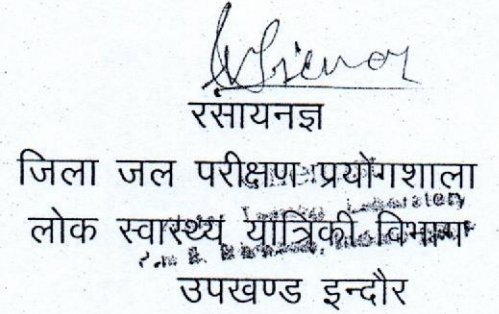 रसायनज्ञ
जिला जल परीक्षण प्रयोगशाला
लोक स्वास्थ्य यांत्रिकी विभाग
उपखण्ड इन्दौर